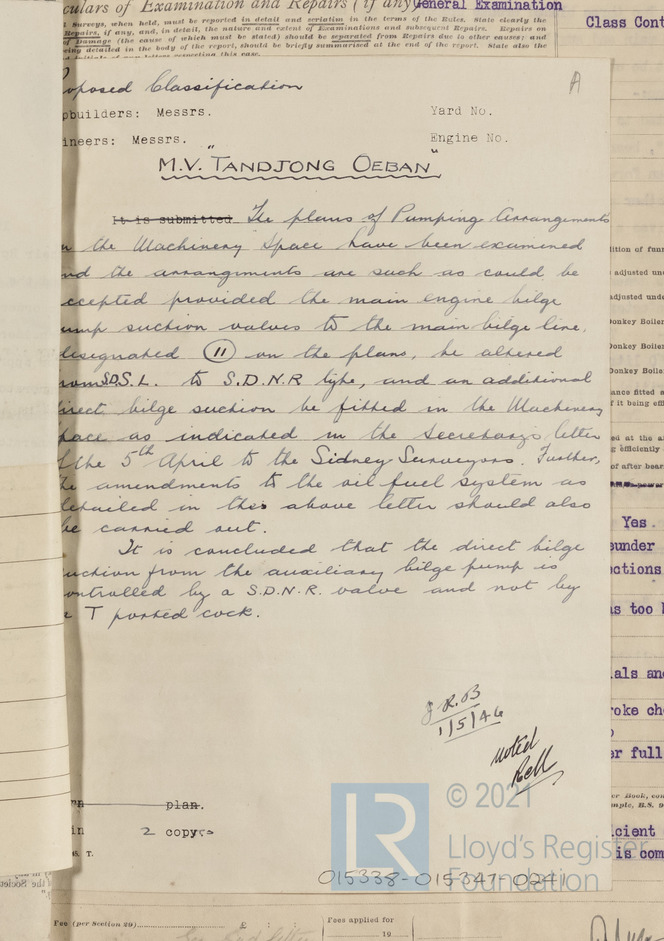 culars of Examination and Repairs (if any)
General Examination
Class Cont
Surveys, when held, must be reported in detail and seriatim in the terms of the Rules. State clearly the
Repairs, if any, and, in detail, the nature and extent of Examinations and subsequent Repairs. Repairs on
of Damage (the cause of which must be stated) should be separated from Repairs due to other causes; and
eing detailed in the body of the report, should be briefly summarised at the end of the report. State also the
oposed Classification
A
pbuilders: Messrs.
Yard No.
ineers: Messrs.
Engine No.
M.V. "TANDJONG OEBAN"
It is submitted The plans of Pumping Arrangements
n the Machinery Space have been examined
nd the arrangements are such as could be
ccepted provided the main engine bilge
ump suction valves to the main bilge line,
designated (11) on the plans, be altered
rom S.D.S.L. to S.D.N.R type, and an additional
irect bilge suction be fitted in the Machinery
pace as indicated in the Secretary's letter
f the 5th April to the Sidney Surveyors. Further,
he amendments to the oil fuel system as
detailed in the above letter should also
be carried out.
It is concluded that the direct bilge
uction from the auxiliary bilge pump is
ontrolled by a S.D.N.R. valve and not by
a T ported cock.
J.R.B
1/5/46
noted
Rell
rn plan.
in 2 copy
45. T.
dition of
adjusted und
adjusted under
Donkey Boiler
Donkey Boile
Donkey Boiler
ance fitted a
f it being eff
ed at the a
g efficiently
of after bear
Yes.
under
ctions
as too
als and
roke ch
er full
er Book, con
mple, B.S. 9
icient
is com
© 2021
Lloyd's Register
Foundation
015338-015347-0241
Fee (per Section 29)
£ : :
Fees applied for
19